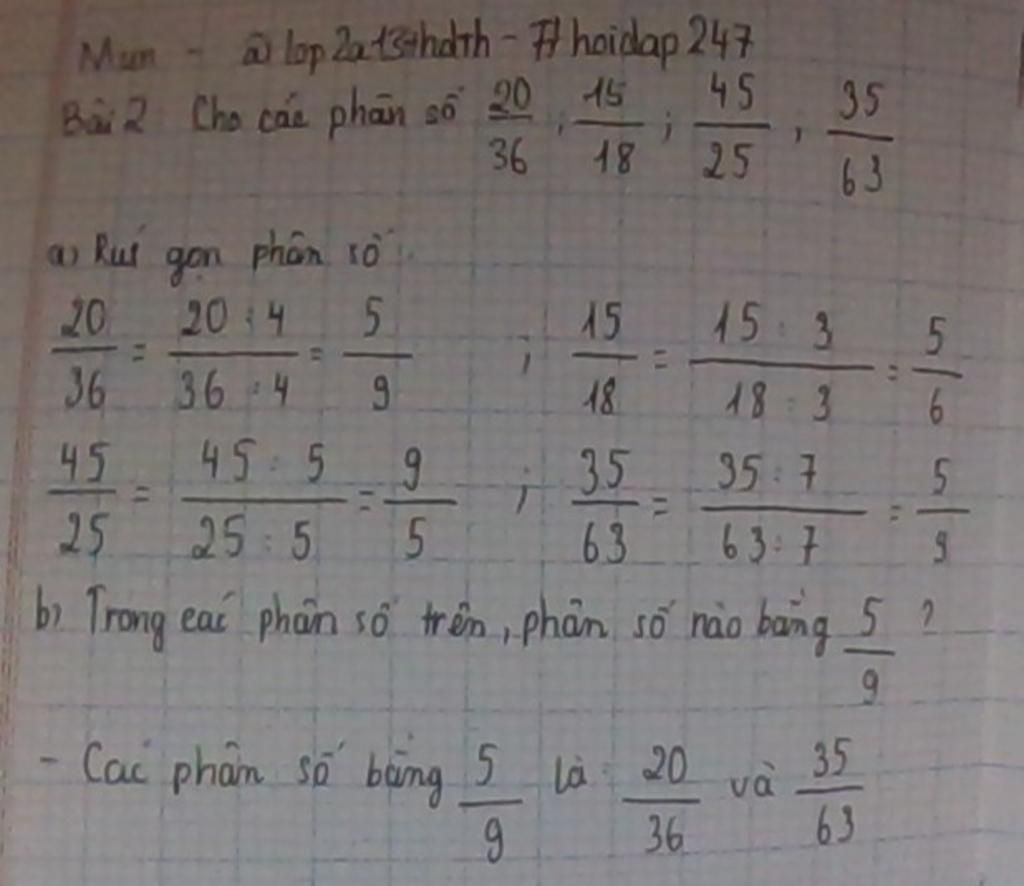 Mun - @ lop2a13thdth - # hoidap 247
Bài 2 Cho các phân số 20/36 ; 15/18 ; 45/25 ; 35/63
a) Rút gọn phân số.
20/36 = 20 : 4/36 : 4 = 5/9 ; 15/18 = 15 : 3/18 : 3 = 5/6
45/25 = 45 : 5/25 : 5 = 9/5 ; 35/63 = 35 : 7/63 : 7 = 5/9
b) Trong các phân số trên, phân số nào bằng 5/9 ?
- Các phân số bằng 5/9 là 20/36 và 35/63